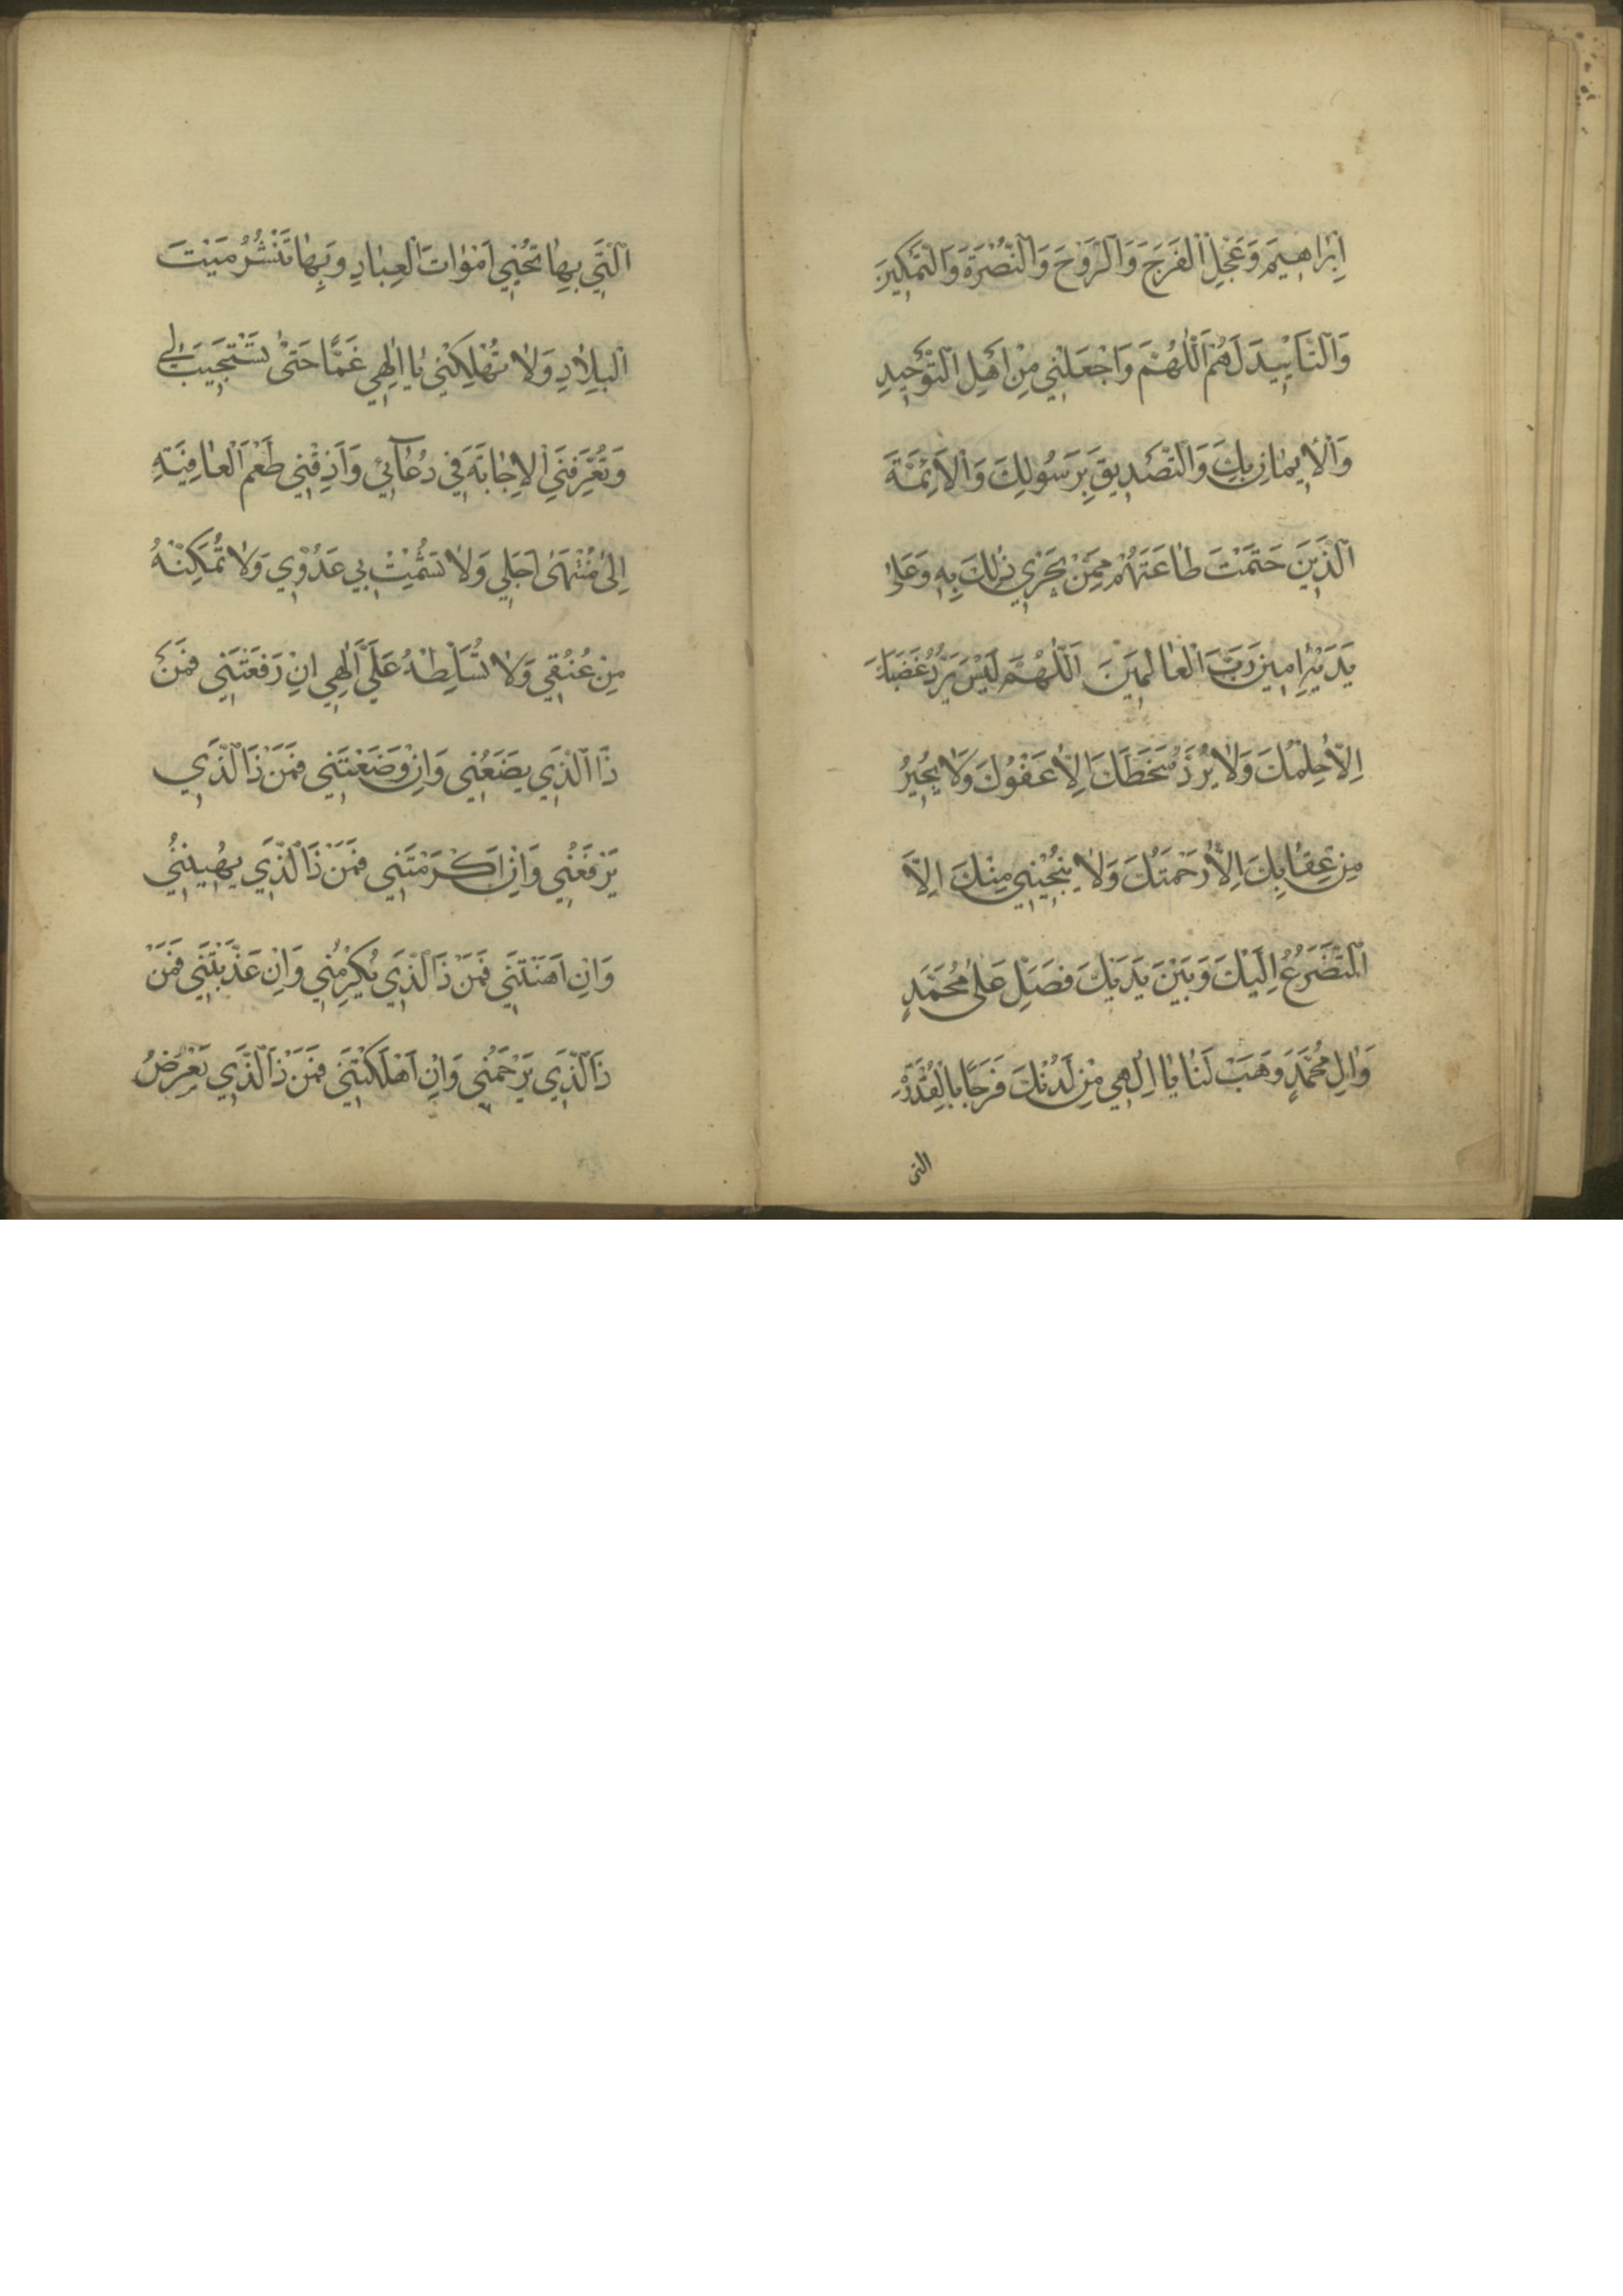 اِبْرَاهِيمَ وَعَجِّلِ الْفَرَجَ وَالرَّوْحَ وَالنُّصْرَةَ وَالتَّمْكِينَ
وَالتَّاْيِيدَ لَهُمْ اَللّٰهُمَّ وَاجْعَلْنِي مِنْ اَهْلِ التَّوْحِيدِ
وَالْاِيمَانِ بِكَ وَالتَّصْدِيقِ بِرَسُولِكَ وَالْاَئِمَّةِ
الَّذِينَ حَتَمْتَ طَاعَتَهُمْ مِمَّنْ يَجْرِي ذٰلِكَ بِهِ وَعَلٰى
يَدَيْهِ اٰمِينَ رَبَّ الْعَالَمِينَ اَللّٰهُمَّ لَيْسَ يَرُدُّ غَضَبَكَ
اِلَّا حِلْمُكَ وَلَا يَرُدُّ سَخَطَكَ اِلَّا عَفْوُكَ وَلَا يُجِيرُ
مِنْ عِقَابِكَ اِلَّا رَحْمَتُكَ وَلَا يُنْجِينِي مِنْكَ اِلَّا
التَّضَرُّعُ اِلَيْكَ وَبَيْنَ يَدَيْكَ فَصَلِّ عَلٰى مُحَمَّدٍ
وَاٰلِ مُحَمَّدٍ وَهَبْ لَنَا يَا اِلٰهِي مِنْ لَدُنْكَ فَرَجًا بِالْقُدْرَةِ
التى
الَّتِي بِهَا تُحْيِي اَمْوَاتَ الْعِبَادِ وَبِهَا تَنْشُرُ مَيْتَ
الْبِلَادِ وَلَا تُهْلِكْنِي يَا اِلٰهِي غَمًّا حَتّٰى تَسْتَجِيبَ لِي
وَتُعَرِّفَنِي الْاِجَابَةَ فِي دُعَائِي وَاَذِقْنِي طَعْمَ الْعَافِيَةِ
اِلٰى مُنْتَهٰى اَجَلِي وَلَا تُشْمِتْ بِي عَدُوِّي وَلَا تُمَكِّنْهُ
مِنْ عُنُقِي وَلَا تُسَلِّطْهُ عَلَيَّ اِلٰهِي اِنْ رَفَعْتَنِي فَمَنْ
ذَا الَّذِي يَضَعُنِي وَاِنْ وَضَعْتَنِي فَمَنْ ذَا الَّذِي
يَرْفَعُنِي وَاِنْ اَكْرَمْتَنِي فَمَنْ ذَا الَّذِي يُهِينُنِي
وَاِنْ اَهَنْتَنِي فَمَنْ ذَا الَّذِي يُكْرِمُنِي وَاِنْ عَذَّبْتَنِي فَمَنْ
ذَا الَّذِي يَرْحَمُنِي وَاِنْ اَهْلَكْتَنِي فَمَنْ ذَا الَّذِي يَعْرِضُ